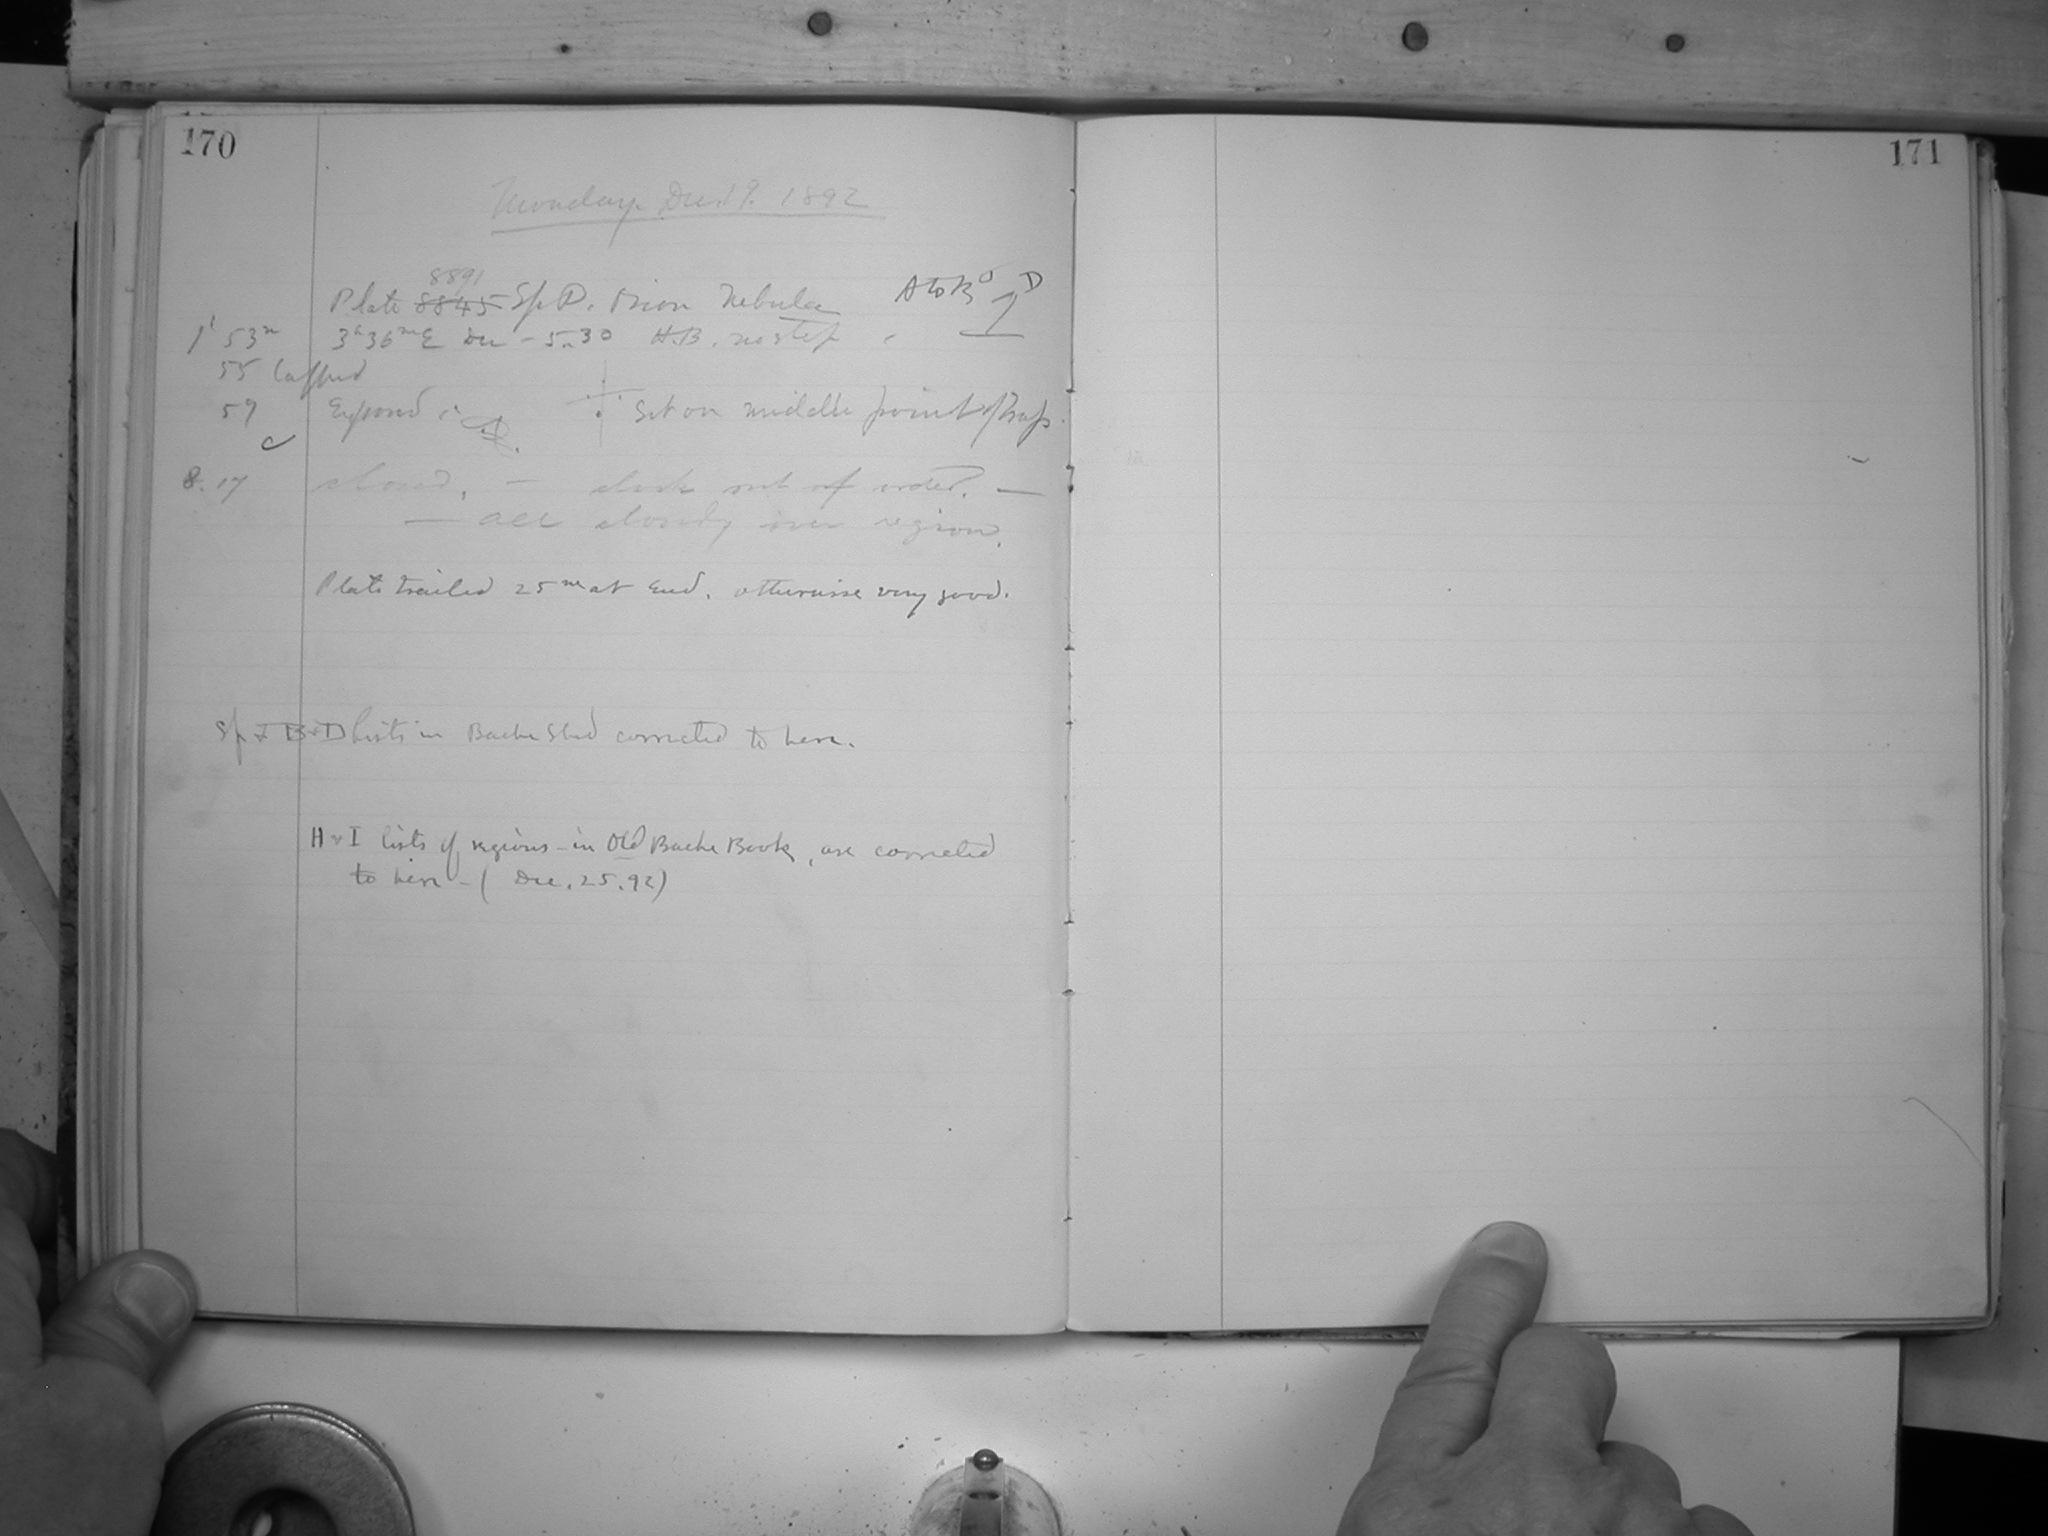 170
171
Monday Dec. 19. 1892
8891
Plate 8845 Sp D. Orion Nebula
A to B
D
1
1h 53m 3h 36m E Dec - 5.30 H.B. no step
55 Capped
59 Exposed Set on middle point of Trap.
8.17 closed. — clock out of order. —
— all cloudy over region.
Plate trailed 25m at End. otherwise very good.
Lists in Bache Shed corrected to here.
H & I lists of regions - in Old Bache Book, are corrected
to here - ( Dec. 25. 92)